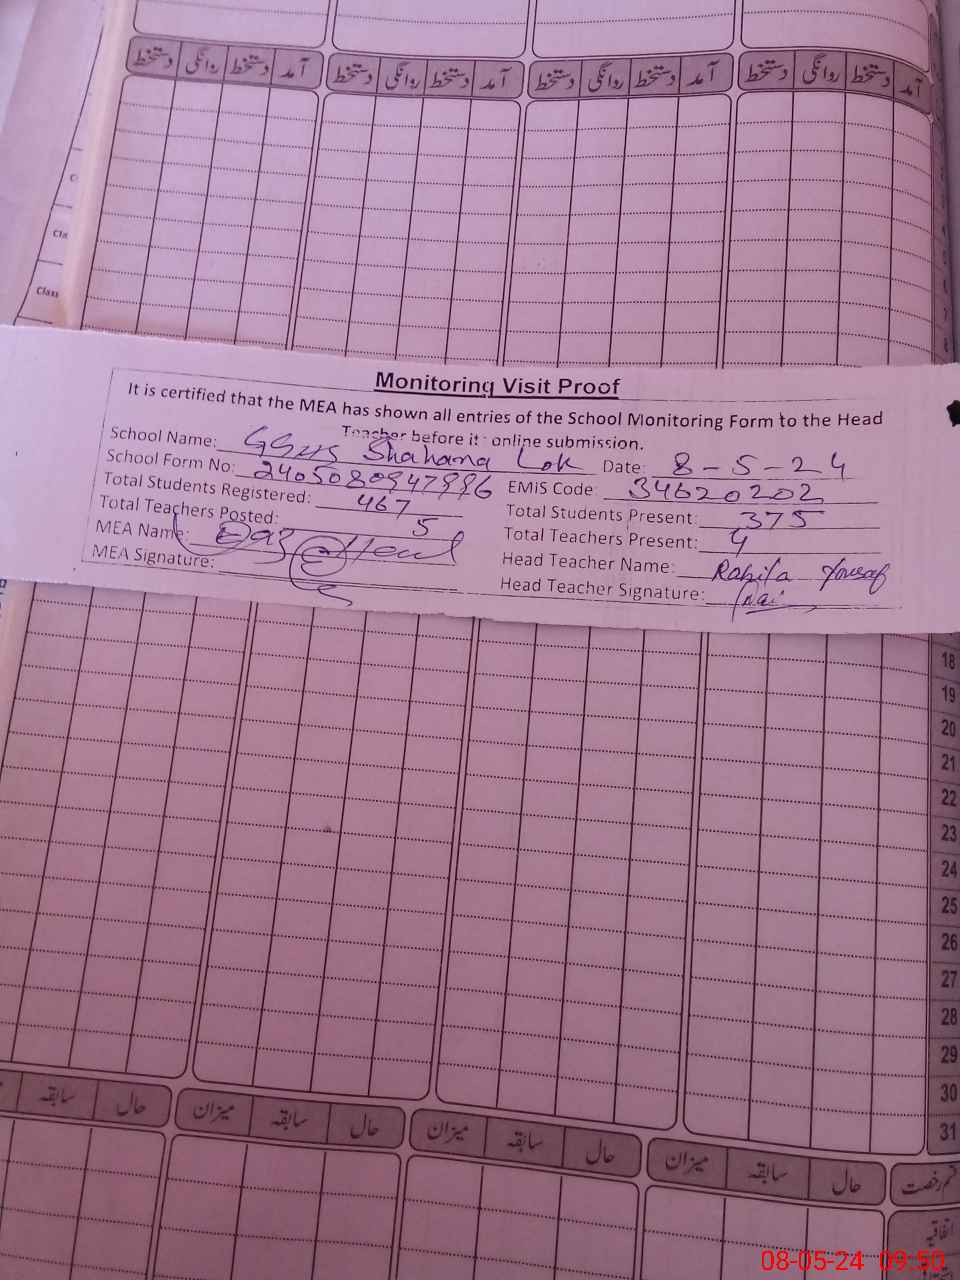 آمد دستخط روانگی دستخط آمد دستخط روانگی دستخط آمد دستخط روانگی دستخط آمد دستخط روانگی دستخط
Cla
Class
Monitoring Visit Proof
It is certified that the MEA has shown all entries of the School Monitoring Form to the Head
Teacher before it online submission.
School Name: Shahana Lok Date: 8-5-24
School Form No: EMiS Code: 34620202
Total Students Registered: 467 Total Students Present: 375
Total Teachers Posted: 5 Total Teachers Present: 4
MEA Name: Head Teacher Name: Rahila Yousaf
MEA Signature: Head Teacher Signature:
18
19
20
21
22
23
24
25
26
27
28
29
30
31
حال سابقہ میزان حال سابقہ میزان حال سابقہ میزان حال سابقہ
قسم رخصت
اتفاقیہ
08-05-24 09:50